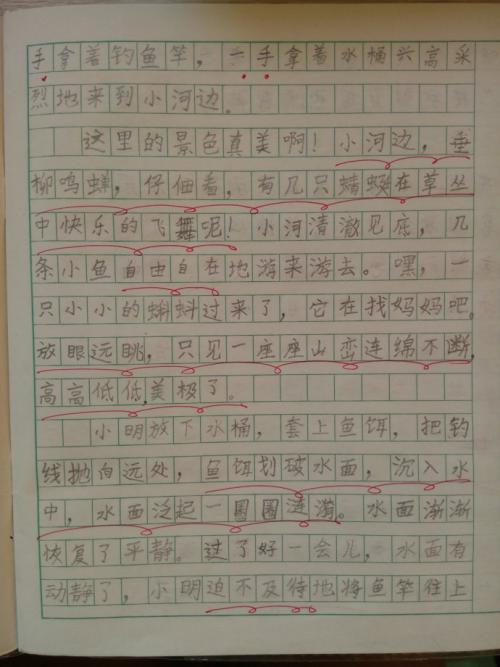 手拿着钓鱼竿，一手拿着水桶兴高采
烈地来到小河边。
这里的景色真美啊！小河边，垂
柳鸣蝉，仔细看，有几只蜻蜓在草丛
中快乐的飞舞呢！小河清澈见底，几
条小鱼自由自在地游来游去。嘿，一
只小小的蝌蚪过来了，它在找妈妈吧。
放眼远眺，只见一座座山峦连绵不断，
高高低低，美极了。
小明放下水桶，套上鱼饵，把钓
线抛向远处，鱼饵划破水面，沉入水
中，水面泛起一圈圈涟漪。水面渐渐
恢复了平静。过了好一会儿，水面有
动静了，小明迫不及待地将鱼竿往上